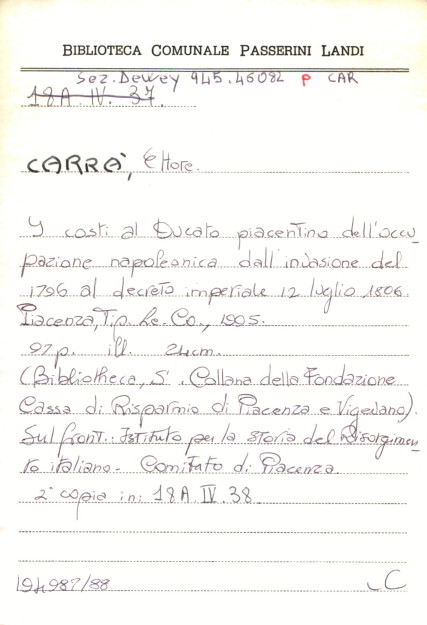 BIBLIOTECA COMUNALE PASSERINI LANDI
Sez. Dewey 945.46082 P CAR
18A.IV. 37.
CARRA', Ettore.
I costi al Ducato piacentino dell'occu-
pazione napoleonica dall'invasione del
1796 al decreto imperiale 12 luglio 1806.
Piacenza, Tip. Le. Co., 1995.
97 p. ill. 24 cm.
(Bibliotheca, 5. Collana della Fondazione
Cassa di Risparmio di Piacenza e Vigevano).
Sul front.: Istituto per la storia del Risorgimen-
to italiano - Comitato di Piacenza.
2ª copia in: 18A IV. 38.
194987/88 C